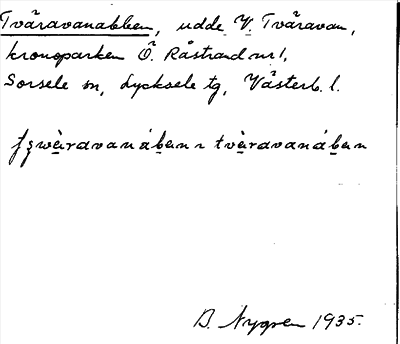 Tväravanabben, udde V. Tväravan,
kronoparken Ö. Råstrand nr 1,
Sorsele sn, Lycksele tg, Västerb. l.
tvàravanában
B. Nygren 1935.